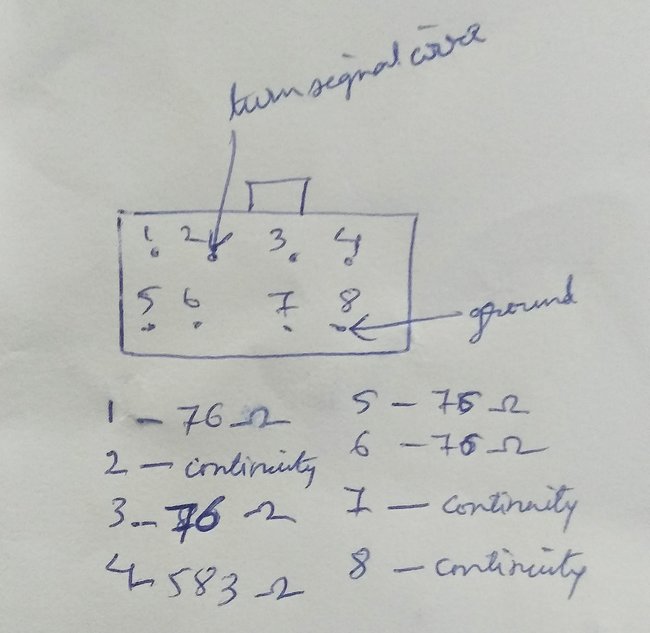 turn signal wire
1 2 3 4
5 6 7 8
ground
1 - 76 Ω
2 - continuity
3 - 76 Ω
4 - 583 Ω
5 - 76 Ω
6 - 76 Ω
7 - continuity
8 - continuity